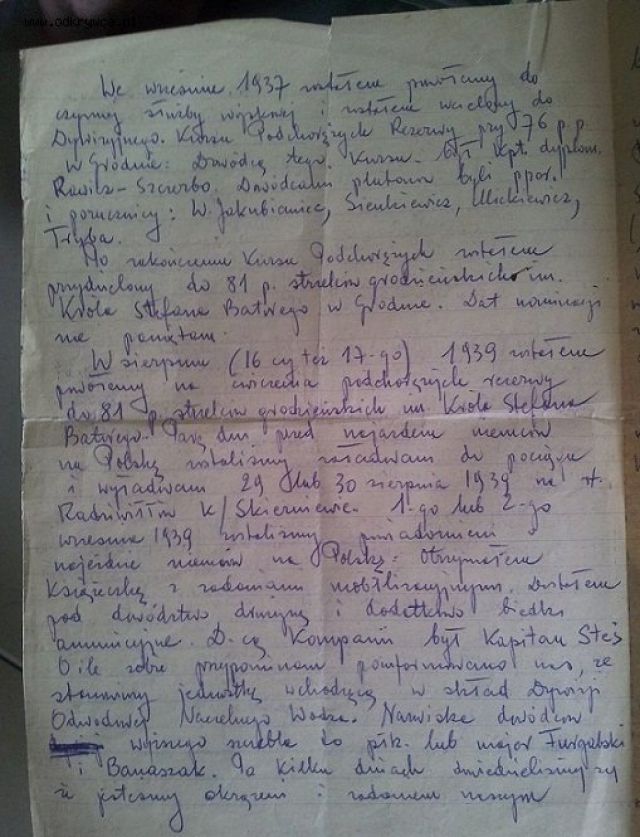 www.odkrywca.pl
We wrześniu 1937 zostałem powołany do
czynnej służby wojskowej i zostałem wcielony do
Dywizyjnego Kursu Podchorążych Rezerwy przy 76 p.p.
w Grodnie. Dowódcą tego Kursu był kpt. dyplom.
Rawicz-Szczerbo. Dowódcami plutonów byli ppor.
i porucznicy: W. Jakubianiec, Sienkiewicz, Mickiewicz,
Tryba.
Po zakończeniu Kursu Podchorążych zostałem
przydzielony do 81 p. strzelców grodzieńskich im.
Króla Stefana Batorego w Grodnie. Dat nominacji
nie pamiętam.
W sierpniu (16 czy też 17-go) 1939 zostałem
powołany na ćwiczenia podchorążych rezerwy
do 81 p. strzelców grodzieńskich im. Króla Stefana
Batorego. Parę dni przed najazdem niemców
na Polskę zostaliśmy załadowani do pociągu
i wyładowani 29 lub 30 sierpnia 1939 na st.
Radziwiłłów k/Skierniewic. 1-go lub 2-go
września 1939 zostaliśmy powiadomieni o
najeździe niemców na Polskę. Otrzymałem
Książeczkę z zadaniami mobilizacyjnymi. Dostałem
pod dowództwo drużynę i dodatkowo biedki
amunicyjne. D-cą Kompanii był Kapitan Steś
O ile sobie przypominam poinformowano nas, że
stanowimy jednostkę wchodzącą w skład Dywizji
Odwodowej Naczelnego Wodza. Nazwiska dowódców
wyższego szczebla to płk. lub major Furgalski
i Banaszak. Po kilku dniach dowiedzieliśmy się
że jesteśmy okrążeni i zadaniem naszym